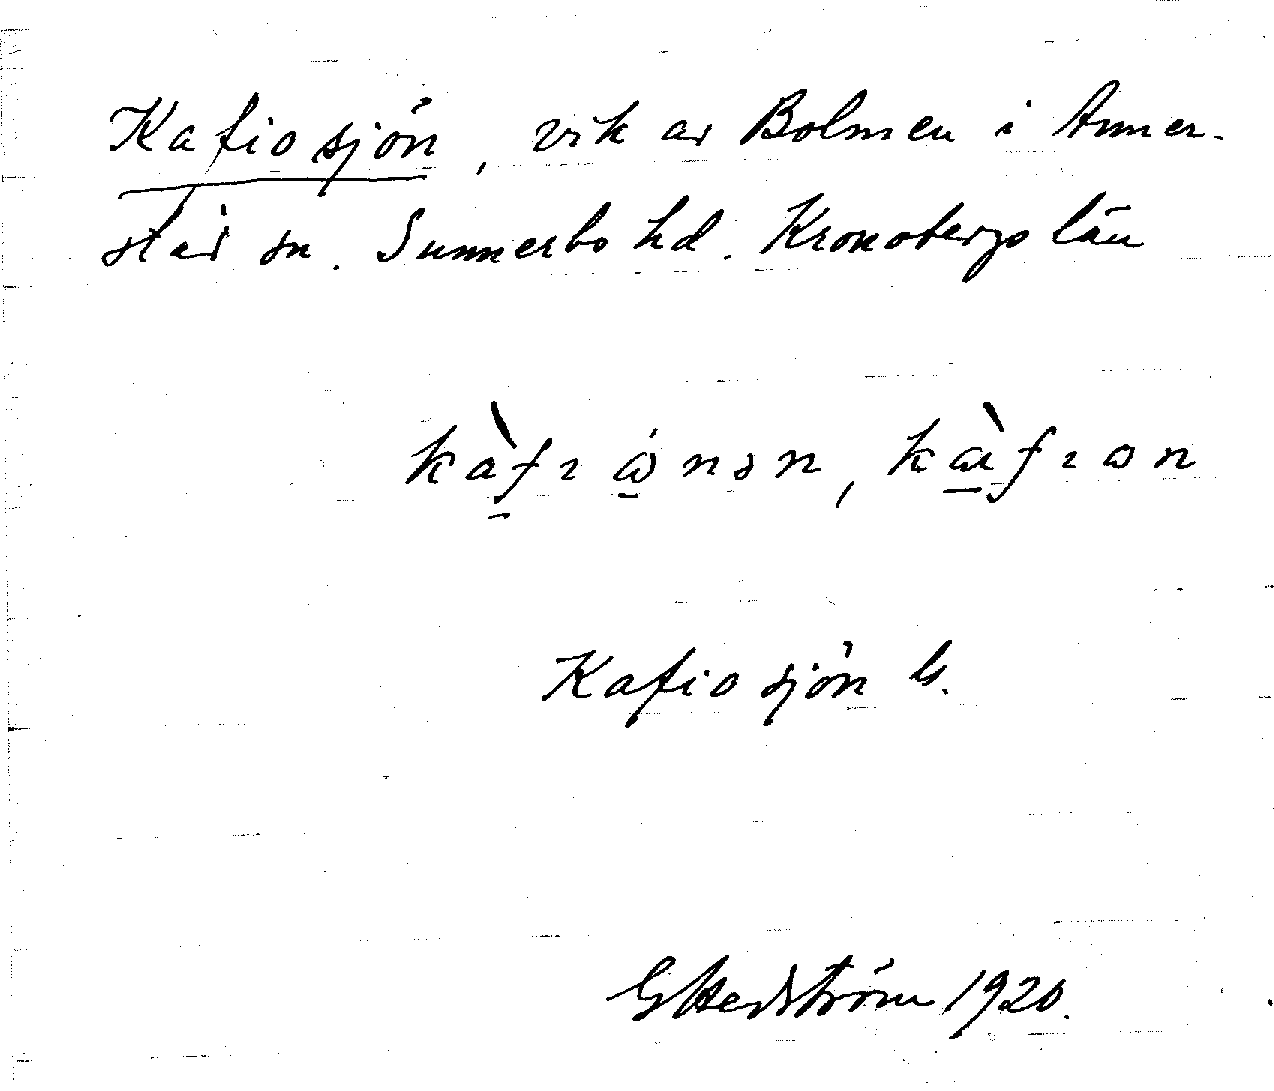 Kafiosjön, vik av Bolmen i Anner-
stad sn. Sunnerbo hd. Kronobergs län
kàfıω̇nən, kàfıωn
Kafiosjön G.
G Hedström 1920.